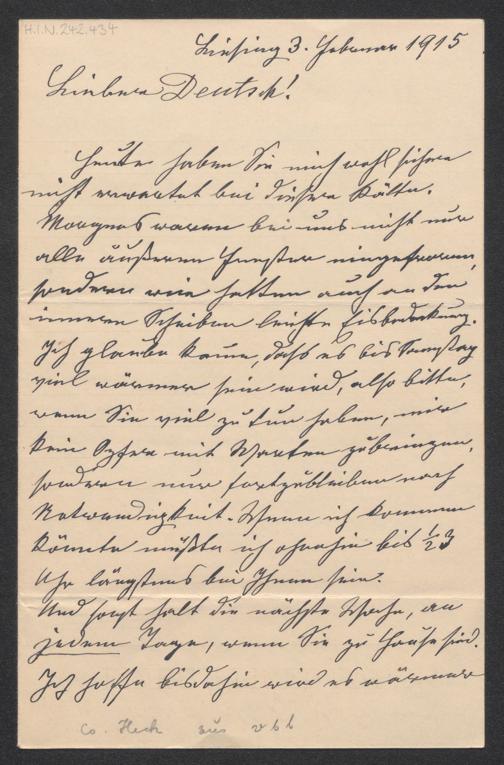 H.I.N. 242.434
Liesing 3. Februar 1915
Lieber Deutsch!
Heute haben Sie mich wohl sicher
nicht erwartet bei dieser Kälte.
Morgens waren bei uns nicht nur
alle äußeren Fenster eingefroren,
sondern wir hatten auch an den
inneren Scheiben leichte Eisbedeckung.
Ich glaube kaum, dass es bis Samstag
viel wärmer sein wird, also bitte,
wenn Sie viel zu tun haben, mir
kein Opfer mit Warten zu bringen,
sondern nur fortzubleiben nach
Notwendigkeit. Wenn ich kommen
könnte müßte ich ohnehin bis ½3
Uhr längstens bei Ihnen sein.
Und sonst halt die nächste Woche, an
jedem Tage, wenn Sie zu Hause sind.
Ich hoffe bis dahin wird es wärmer
Co. Heck